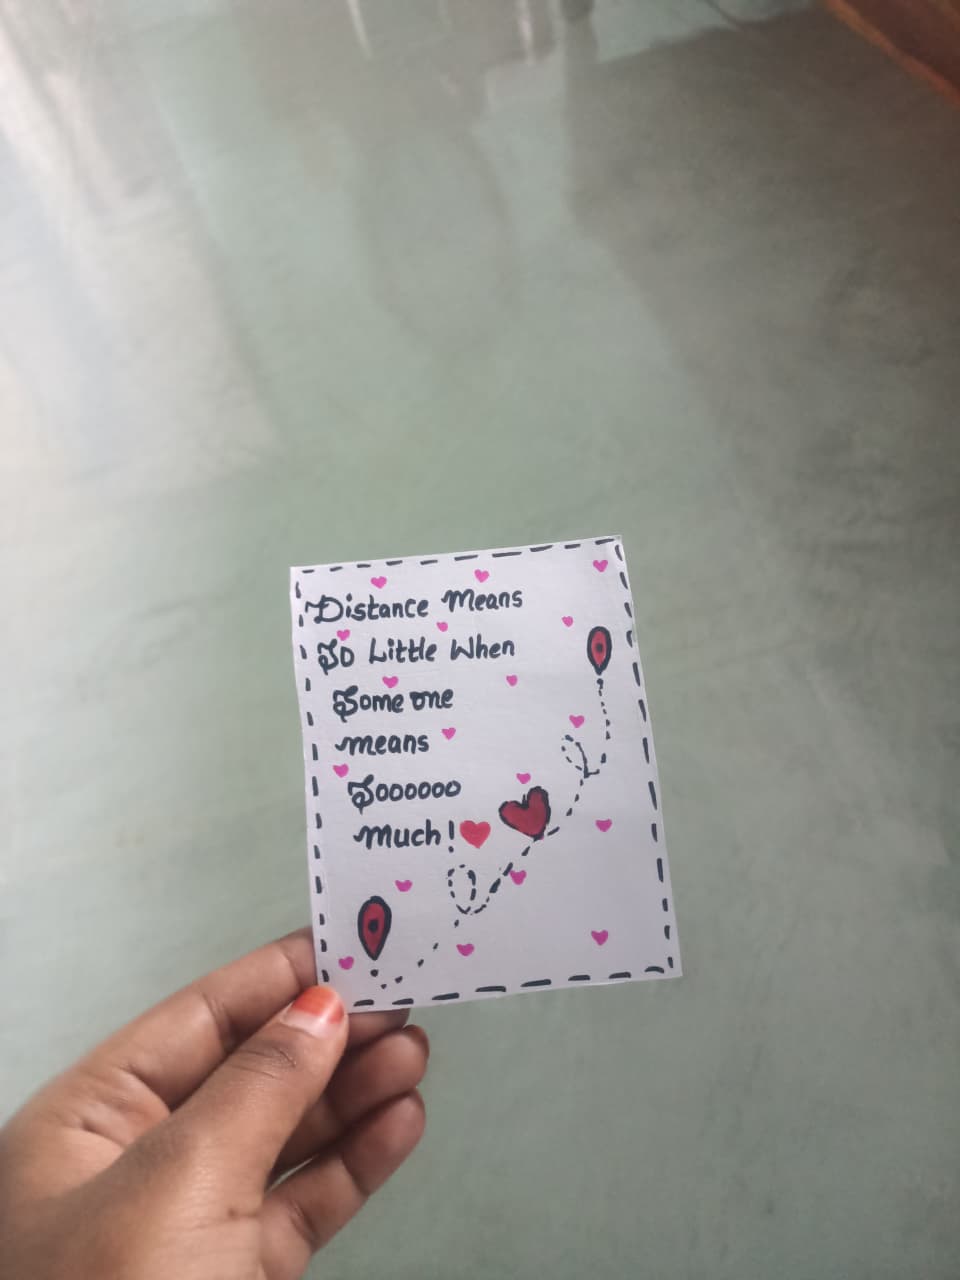 Distance Means
So Little When
Some one
means
Soooooo
Much!